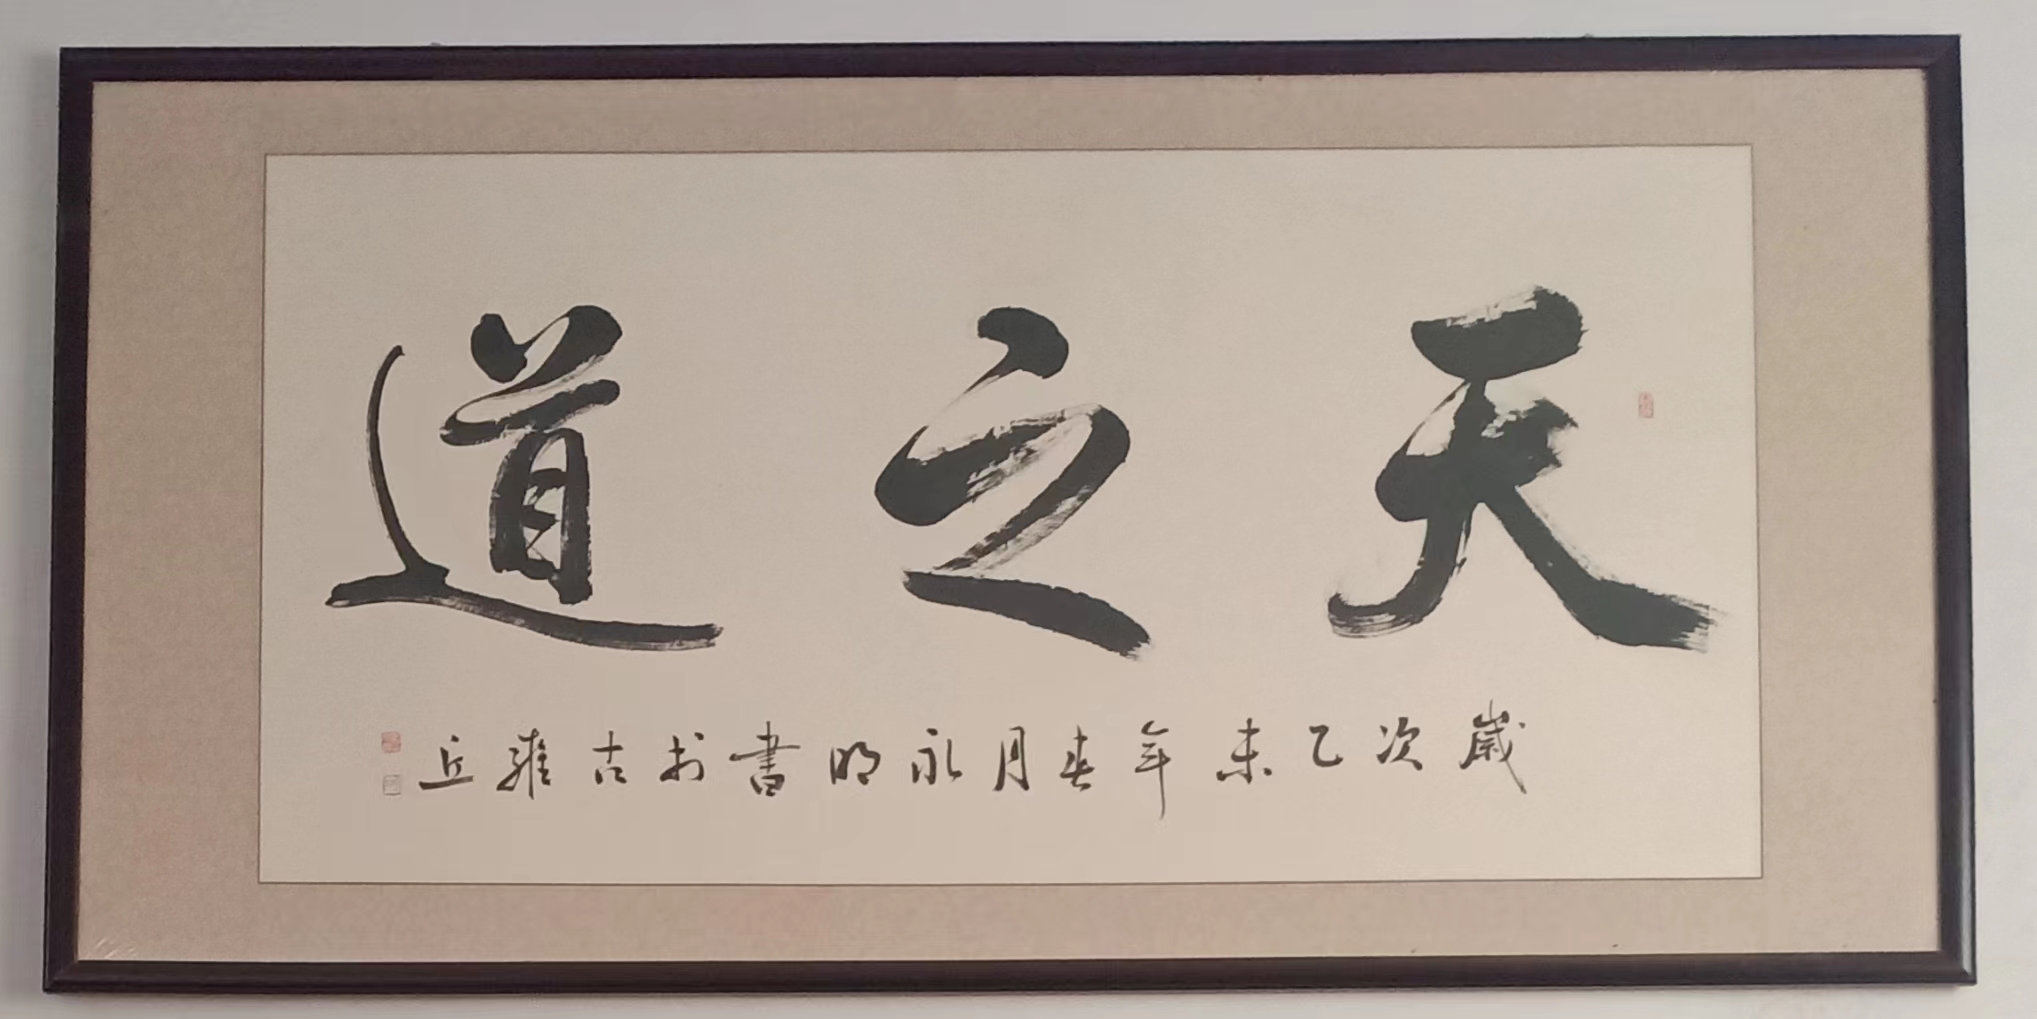 天之道
歲次乙未年春月永明書於古雍丘